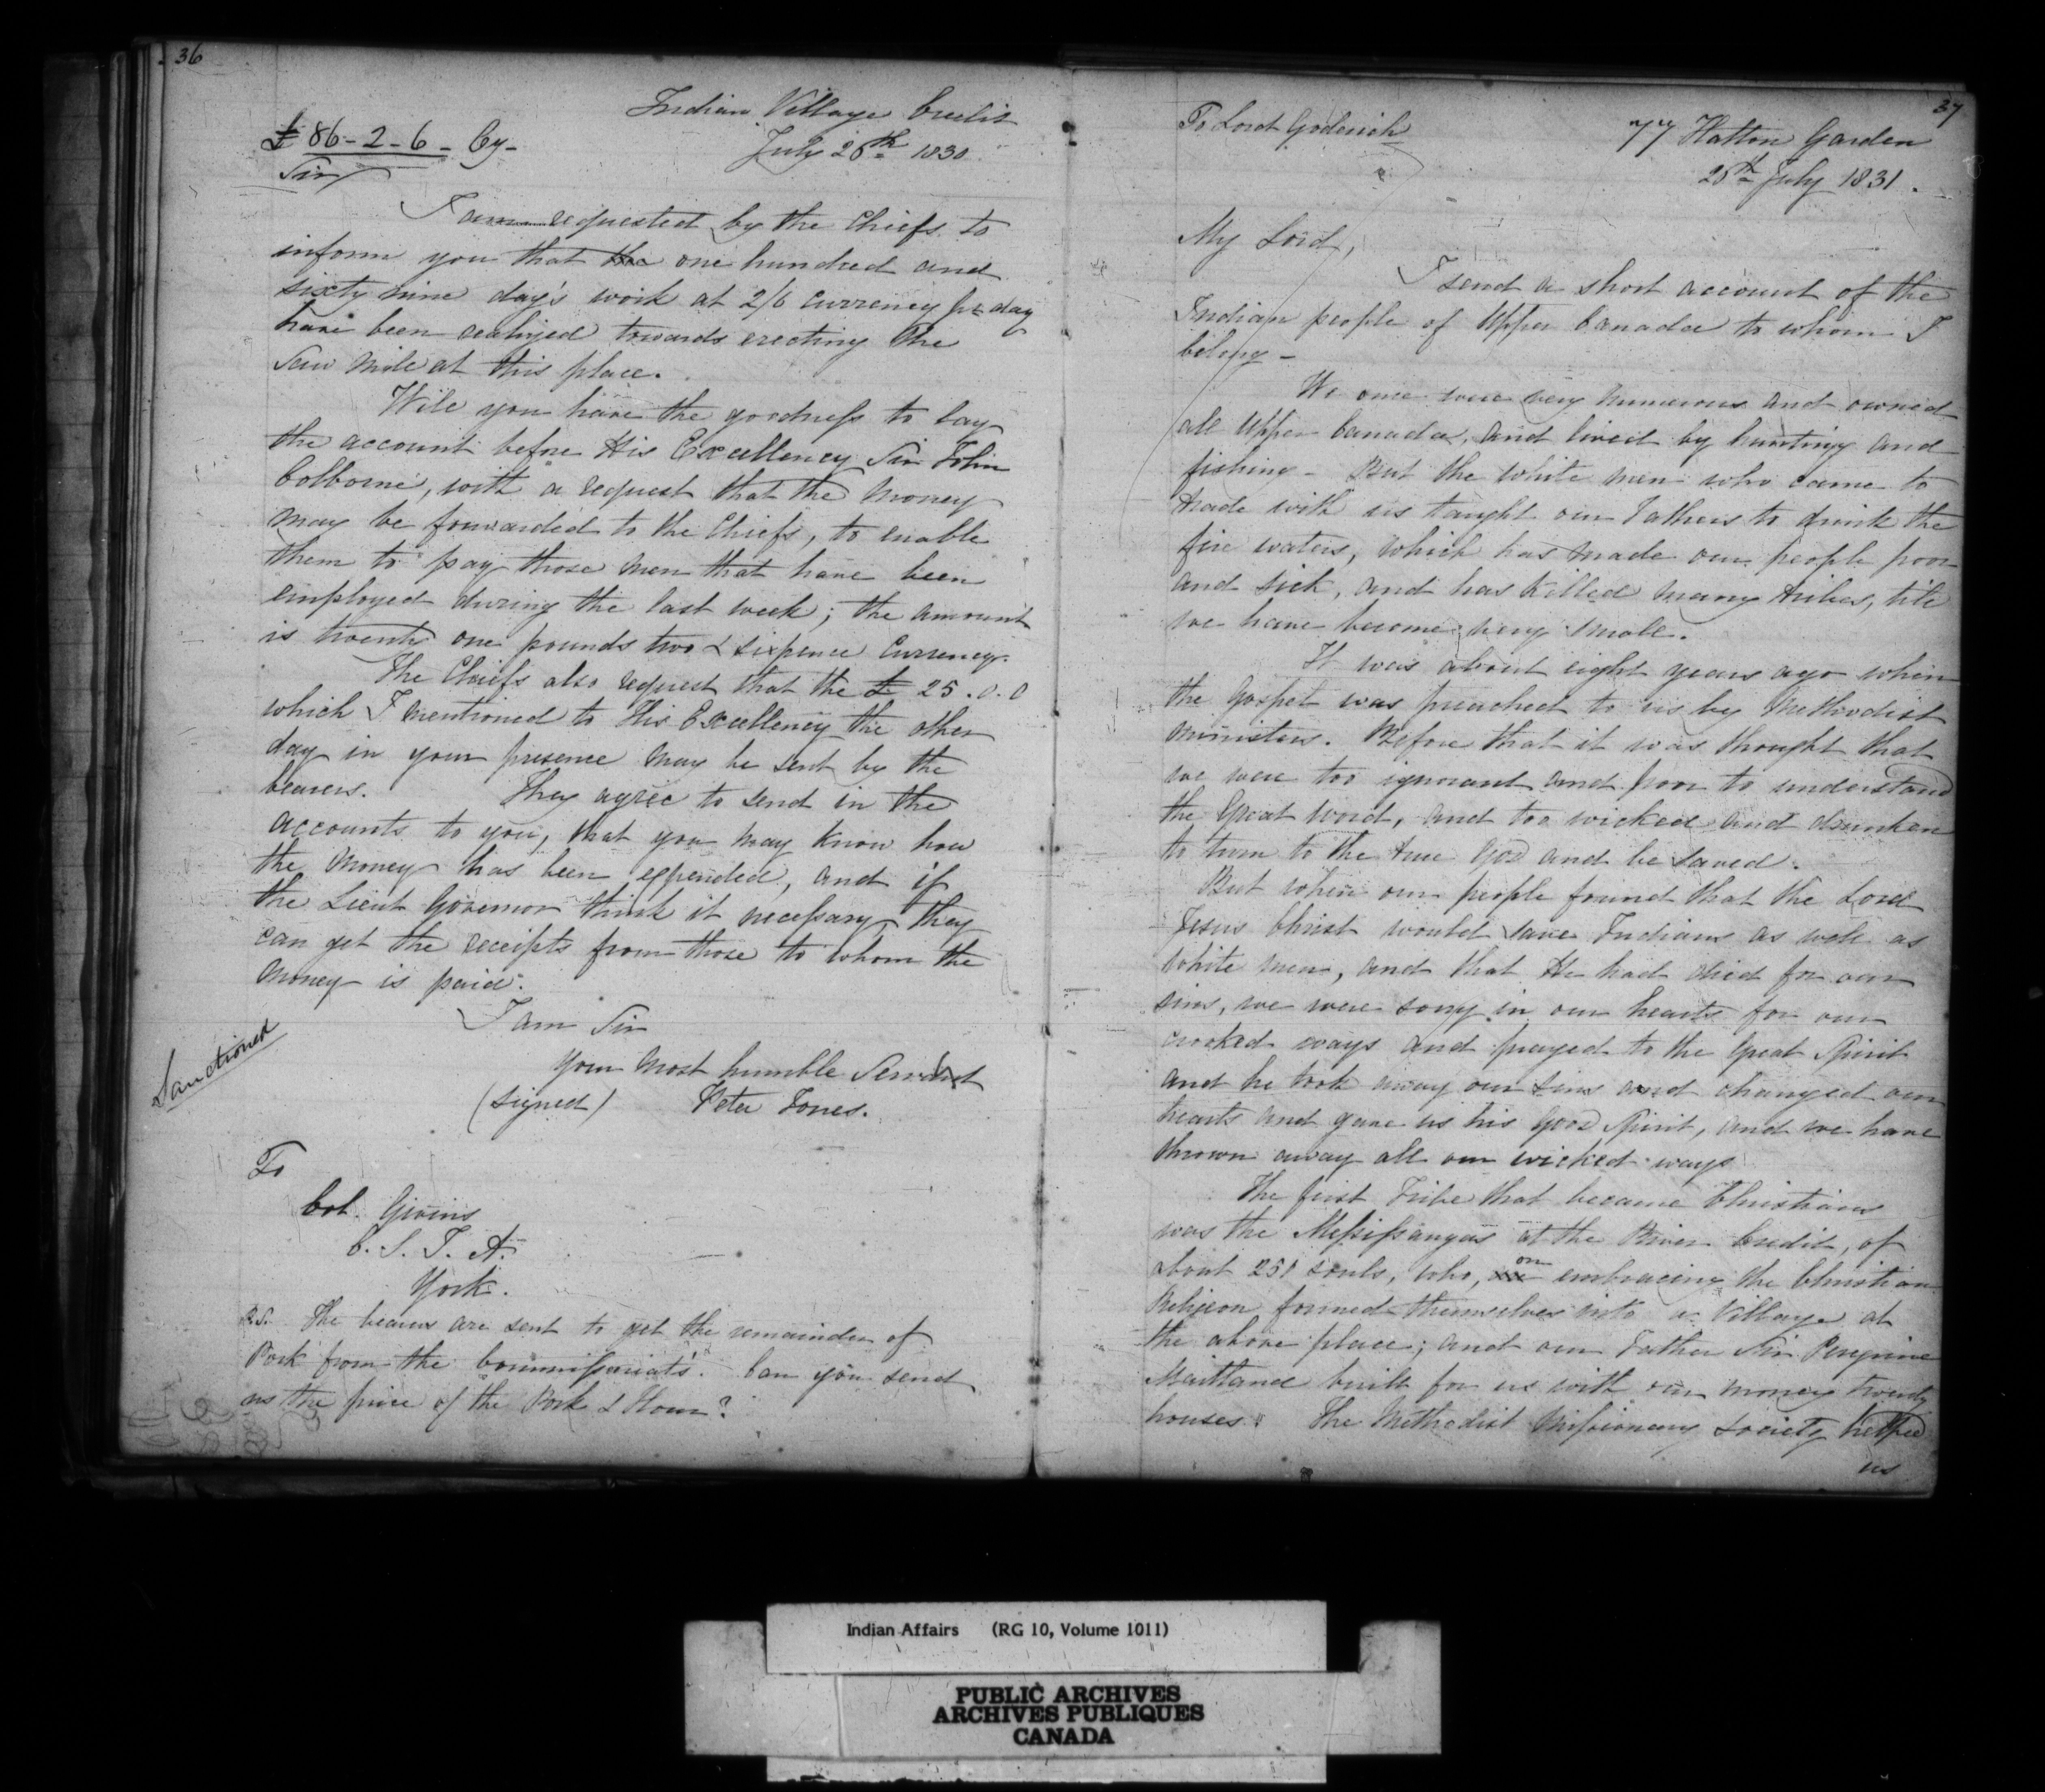 36
Indian Village Credit
£ 86-2-6- Cy-
July 26th 1830
Sir
I am requested by the Chiefs to
inform you that the one hundred and
sixty nine day's work at 2/6 currency pr day
have been realized towards erecting the
Saw Mill at this place.
Will you have the goodness to lay
the account before His Excellency Sir John
Colborne, with a request that the money
may be forwarded to the Chiefs, to enable
them to pay those men that have been
employed during the last week; the amount
is twenty one pounds two & sixpence Currency.
The Chiefs also request that the £ 25.0.0
which I mentioned to His Excellency the other
day in your presence may be sent by the
bearers. They agree to send in the
accounts to you, that you may know how
the money has been expended, and if
the Lieut Governor think it necessary they
can get the receipts from those to whom the
money is paid.
I am Sir
Your most humble Servant
(signed) Peter Jones.
Sanctioned
To
Col. Givins
C. S. I. A.
York.
P.S. The bearers are sent to get the remainder of
Pork from the Commissariat's. Can you send
us the price of the Pork & Flour?
37
To Lord Goderich
77 Hatton Garden
26th July 1831.
My Lord,
I send a short account of the
Indian people of Upper Canada to whom I
belong-
We once were very numerous and owned
all Upper Canada, and lived by hunting and
fishing- But the white men who came to
trade with us taught our Fathers to drink the
fire waters, which has made our people poor
and sick, and has killed many tribes, till
we have become very small.
It was about eight years ago when
the Gospel was preached to us by Methodist
Ministers. Before that it was thought that
we were too ignorant and poor to understand
the Great Word, and too wicked and drunken
to turn to the true God and be saved.
But when our people found that the Lord
Jesus Christ would save Indians as well as
White men, and that He had died for our
sins, we were sorry in our hearts for our
crooked ways and prayed to the Great Spirit
and he took away our sins and changed our
hearts and gave us his Good Spirit, and we have
thrown away all our wicked ways
The first Tribe that became Christians
was the Messissangas at the River Credit, of
about 250 souls, who, on embracing the Christian
Religion formed themselves into a Village at
the above place; and our Father Sir Peregrine
Maitland built for us with our money twenty
houses. The Methodist Missionary Society helped
us
Indian Affairs (RG 10, Volume 1011)
PUBLIC ARCHIVES
ARCHIVES PUBLIQUES
CANADA